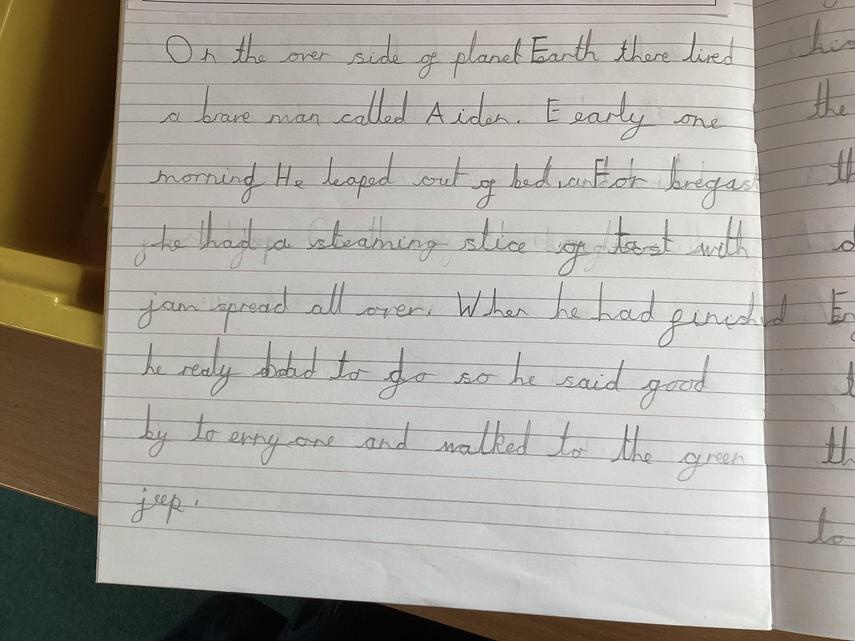 On the over side of planet Earth there lived
a brave man called Aiden. E early one
morning He leaped out of bed, For bregast
he had a steaming slice of toast with
jam spread all over. When he had finished
he realy to go so he said good
by to enny one and walked to the green
jeep.
his
the
th
d
En
t
th
to